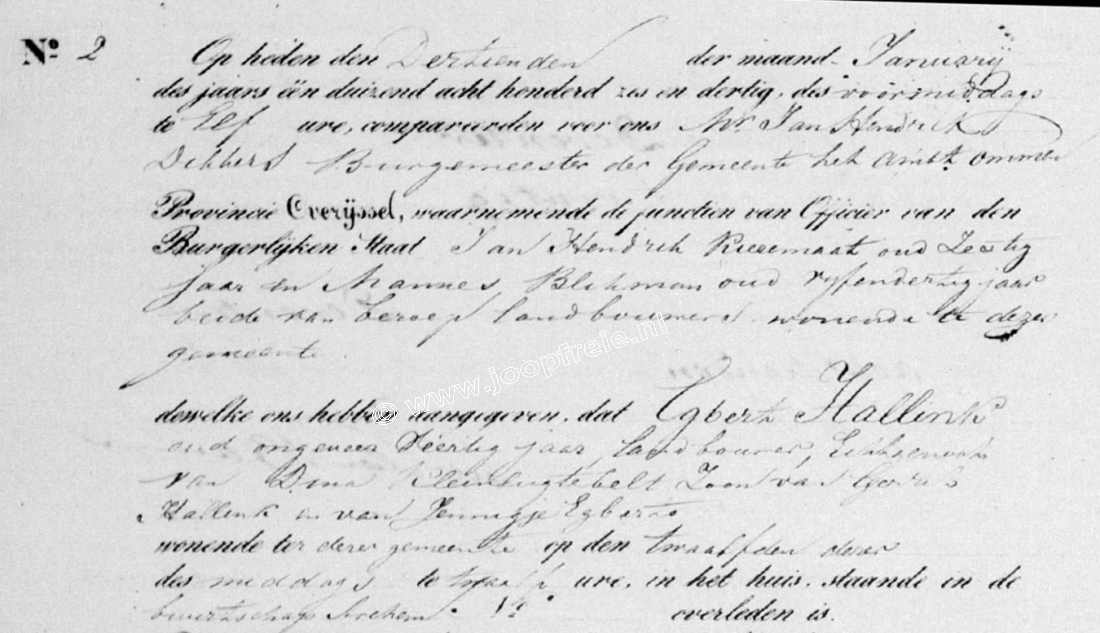 Nº 2 Op heden den Dertienden der maand Januarij
des jaars één duizend acht honderd zes en dertig, des voormiddags
te Elf ure, compareerden voor ons Mr Jan Hendrik
Dikkers Burgemeester der Gemeente het ambt ommen
Provincie Overijssel, waarnemende de functien van Officier van den
Burgerlijken Staat Jan Hendrik oud Zestig
Jaar en Mannes oud vyfendertig jaar
beide van beroep landbouwers wonende te dezer
gemeente.
dewelke ons hebben aangegeven, dat Egbert Hallink
oud ongeveer jaar, landbouwer, Echtgenoot
van Dina Kleinlugtebelt Zoon van Gerrit
Hallink en van Jennigje Egberts
wonende ter dezer gemeente op den twaalfden dezer
des middags te twaalf ure, in het huis, staande in de
buurtschap Archem overleden is.
© www.joopfrele.nl